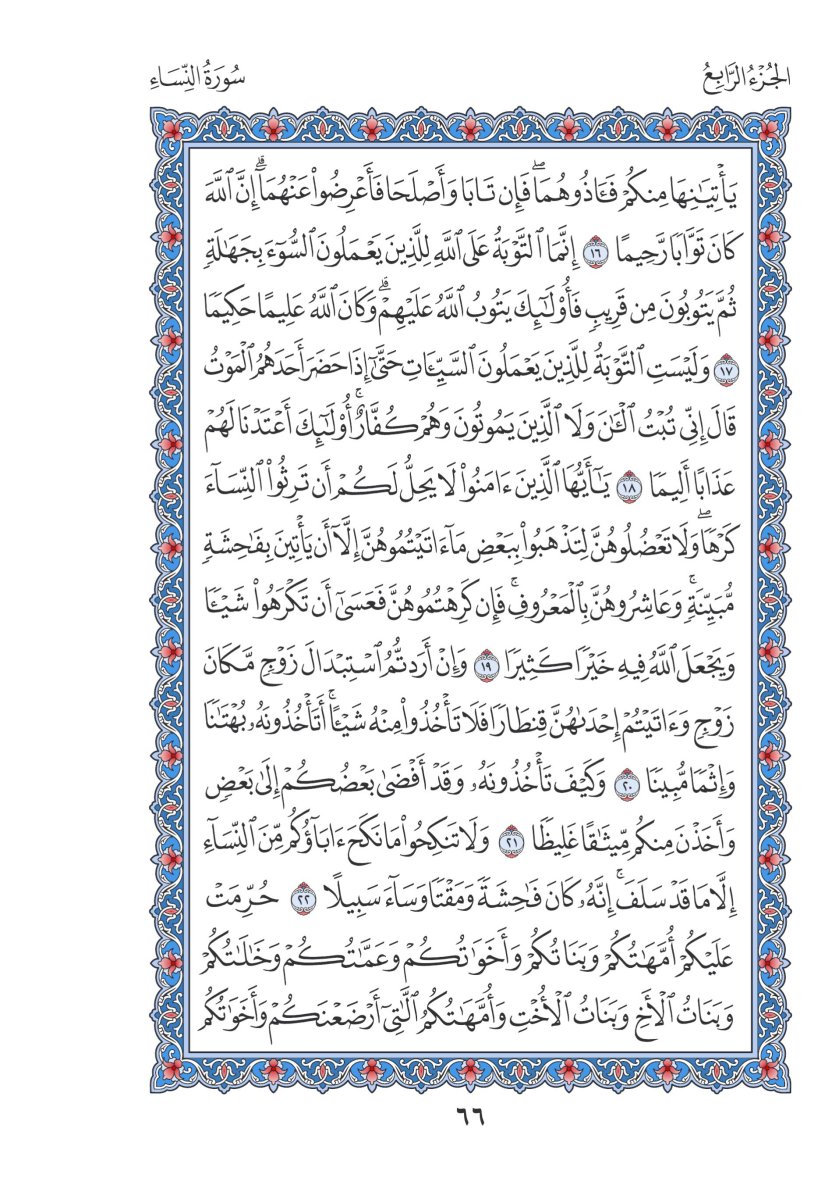 الجُزْءُ الرَّابِعُ
سُورَةُ النِّسَاءِ
يَأْتِيَٰنِهَا مِنكُمْ فَـَٔاذُوهُمَاۖ فَإِن تَابَا وَأَصْلَحَا فَأَعْرِضُوا۟ عَنْهُمَآۗ إِنَّ ٱللَّهَ
كَانَ تَوَّابًا رَّحِيمًا ١٦ إِنَّمَا ٱلتَّوْبَةُ عَلَى ٱللَّهِ لِلَّذِينَ يَعْمَلُونَ ٱلسُّوٓءَ بِجَهَٰلَةٍ
ثُمَّ يَتُوبُونَ مِن قَرِيبٍ فَأُو۟لَٰٓئِكَ يَتُوبُ ٱللَّهُ عَلَيْهِمْۗ وَكَانَ ٱللَّهُ عَلِيمًا حَكِيمًا
١٧ وَلَيْسَتِ ٱلتَّوْبَةُ لِلَّذِينَ يَعْمَلُونَ ٱلسَّيِّـَٔاتِ حَتَّىٰٓ إِذَا حَضَرَ أَحَدَهُمُ ٱلْمَوْتُ
قَالَ إِنِّى تُبْتُ ٱلْـَٰٔنَ وَلَا ٱلَّذِينَ يَمُوتُونَ وَهُمْ كُفَّارٌۚ أُو۟لَٰٓئِكَ أَعْتَدْنَا لَهُمْ
عَذَابًا أَلِيمًا ١٨ يَٰٓأَيُّهَا ٱلَّذِينَ ءَامَنُوا۟ لَا يَحِلُّ لَكُمْ أَن تَرِثُوا۟ ٱلنِّسَآءَ
كَرْهًاۖ وَلَا تَعْضُلُوهُنَّ لِتَذْهَبُوا۟ بِبَعْضِ مَآ ءَاتَيْتُمُوهُنَّ إِلَّآ أَن يَأْتِينَ بِفَٰحِشَةٍ
مُّبَيِّنَةٍۚ وَعَاشِرُوهُنَّ بِٱلْمَعْرُوفِۚ فَإِن كَرِهْتُمُوهُنَّ فَعَسَىٰٓ أَن تَكْرَهُوا۟ شَيْـًٔا
وَيَجْعَلَ ٱللَّهُ فِيهِ خَيْرًا كَثِيرًا ١٩ وَإِنْ أَرَدتُّمُ ٱسْتِبْدَالَ زَوْجٍ مَّكَانَ
زَوْجٍ وَءَاتَيْتُمْ إِحْدَىٰهُنَّ قِنطَارًا فَلَا تَأْخُذُوا۟ مِنْهُ شَيْـًٔاۚ أَتَأْخُذُونَهُۥ بُهْتَٰنًا
وَإِثْمًا مُّبِينًا ٢٠ وَكَيْفَ تَأْخُذُونَهُۥ وَقَدْ أَفْضَىٰ بَعْضُكُمْ إِلَىٰ بَعْضٍ
وَأَخَذْنَ مِنكُم مِّيثَٰقًا غَلِيظًا ٢١ وَلَا تَنكِحُوا۟ مَا نَكَحَ ءَابَآؤُكُم مِّنَ ٱلنِّسَآءِ
إِلَّا مَا قَدْ سَلَفَۚ إِنَّهُۥ كَانَ فَٰحِشَةً وَمَقْتًا وَسَآءَ سَبِيلًا ٢٢ حُرِّمَتْ
عَلَيْكُمْ أُمَّهَٰتُكُمْ وَبَنَاتُكُمْ وَأَخَوَٰتُكُمْ وَعَمَّٰتُكُمْ وَخَٰلَٰتُكُمْ
وَبَنَاتُ ٱلْأَخِ وَبَنَاتُ ٱلْأُخْتِ وَأُمَّهَٰتُكُمُ ٱلَّٰتِىٓ أَرْضَعْنَكُمْ وَأَخَوَٰتُكُم
٦٦